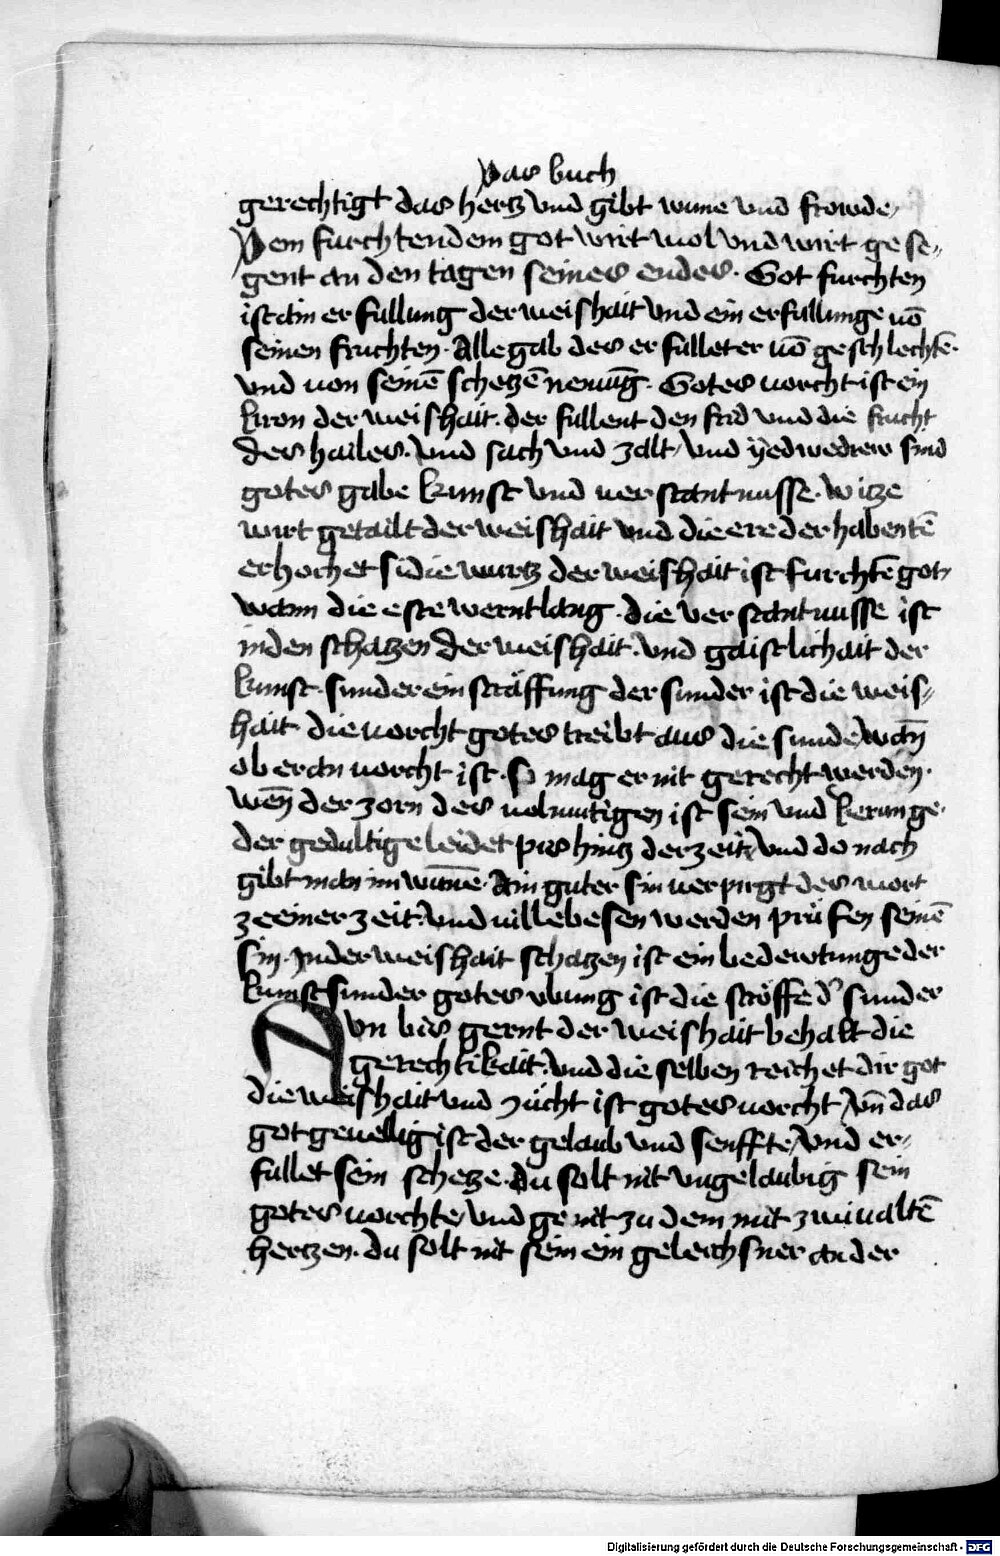 Das buch
gerechtigt das hertz vnd gibt wune vnd frowde/
Dem furchtendem got wirt wol vnd wirt gese„
gent an den tagen seines endes. Got furchten
ist ain erfullung der weishait vnd ein erfullunge uō
seinen fruchten. Alle gab des erfulleter uō geschlechtē.
vnd uon seinē schetzē newūg. Gotes uorcht ist ein
kron der weishait. der fullent den frid vnd die frucht
des hailes. vnd sach vnd zalt/ vnd ÿedwedrew sind
gotes gabe kunst vnd uerstantnusse. Witze
wirt getailt der weishait vnd die ere der habentē
erhochet si die wurtz der weishait ist furchtē got/
wann die este wernt lang. die verstantnusse ist
in den schatzen der weishait. vnd gaistlichait der
kunst. sunder ein sträffung der sunder ist die weis„
hait die uorcht gotes treibt aus die sunde/ wan̄
ob er an uorcht ist. so mag er nit gerecht werden.
wen̄ der zorn des uolmutigen ist sein vnd kerunge.
der gedultige leidet pis hintz der zeit/ vnd do nach
gibt man im wūne. Ain guter sin uerpirgt des wort
ze einer zeit. vnd uil lebesen werden prüfen seinē
sin. In der weishait schatzen ist ein bedewtunge der
kunst sunder gotes vbung ist die ströffe d' sunder
Svn bis gernt der weishait behalt die
gerechtikait. vnd die selben reichet dir got
die weishait vnd zücht ist gotes uorcht/ vn̄ das
got geuellig ist der gelaub vnd senffte/ vnd er„
fullet sein schetze. du solt nit vngelaubig sein
gotes uorchte/ vnd ge nit zu dem mit zwiualtē
hertzen. du solt nit sein ein geleichsner an der
Digitalisierung gefördert durch die Deutsche Forschungsgemeinschaft - DFG